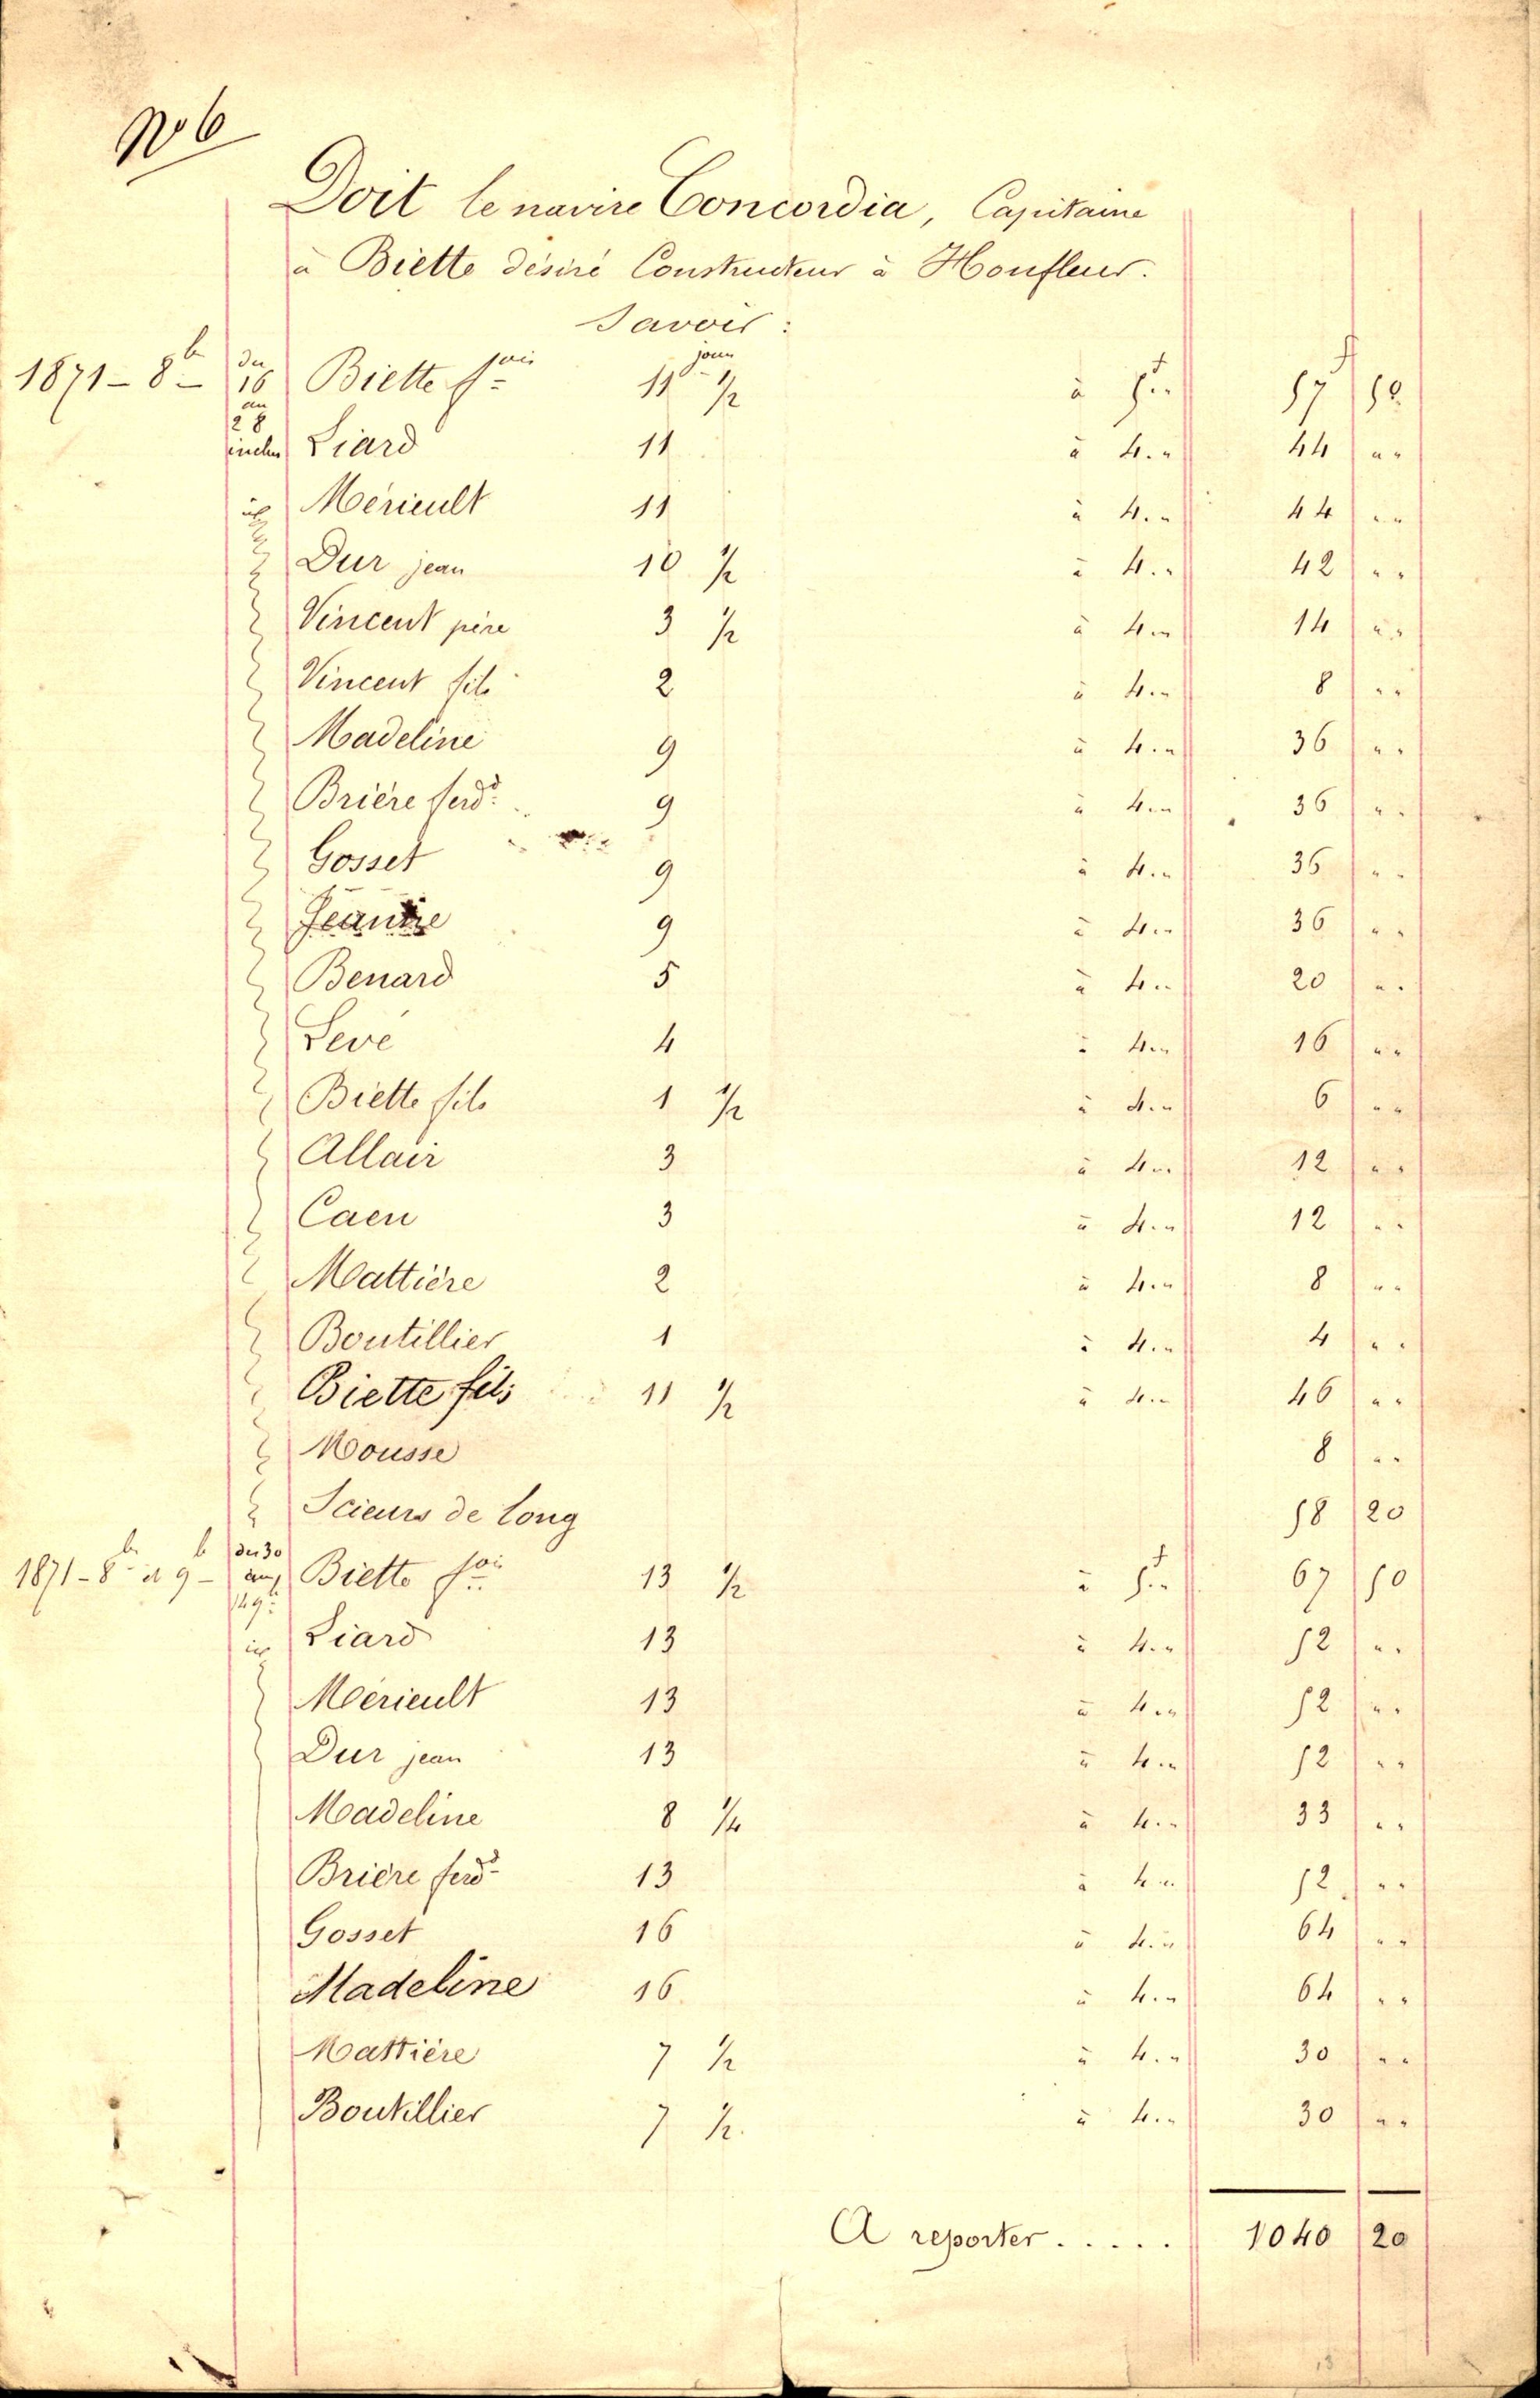 No 6
Doit le navire Concordia, Capitaine
à Biette désiré Constructeur à Honfleur.
Savoir :
1871 - 8bre du 16 au 28 inclus Biette 11 jours 1/2 à 5 f 57 50
Liard 11 à 4. " 44 " "
Mérieult 11 à 4. " 44 " "
Dur jean 10 1/2 à 4. " 42 " "
Vincent père 3 1/2 à 4. " 14 " "
Vincent fils 2 à 4. " 8 " "
Madeline 9 à 4. " 36 " "
Brière ferd 9 à 4. " 36 " "
Gosset 9 à 4. " 36 " "
9 à 4. " 36 " "
Benard 5 à 4. " 20 " "
Levé 4 à 4. " 16 " "
Biette fils 1 1/2 à 4. " 6 " "
Allair 3 à 4. " 12 " "
Caen 3 à 4. " 12 " "
Mattière 2 à 4. " 8 " "
Boutillier 1 à 4. " 4 " "
Biette fils 11 1/2 à 4. " 46 " "
Mousse 8 " "
Scieurs de long 58 20
1871 - 8bre et 9bre du 30 au Biette 13 1/2 à 5 f 67 50
Liard 13 à 4. " 52 " "
Mérieult 13 à 4. " 52 " "
Dur jean 13 à 4. " 52 " "
Madeline 8 1/4 à 4. " 33 " "
Brière ferd 13 à 4. " 52 " "
Gosset 16 à 4. " 64 " "
Madeline 16 à 4. " 64 " "
Mattière 7 1/2 à 4. " 30 " "
Boutillier 7 1/2 à 4. " 30 " "
A reporter . . . . . 1040 20